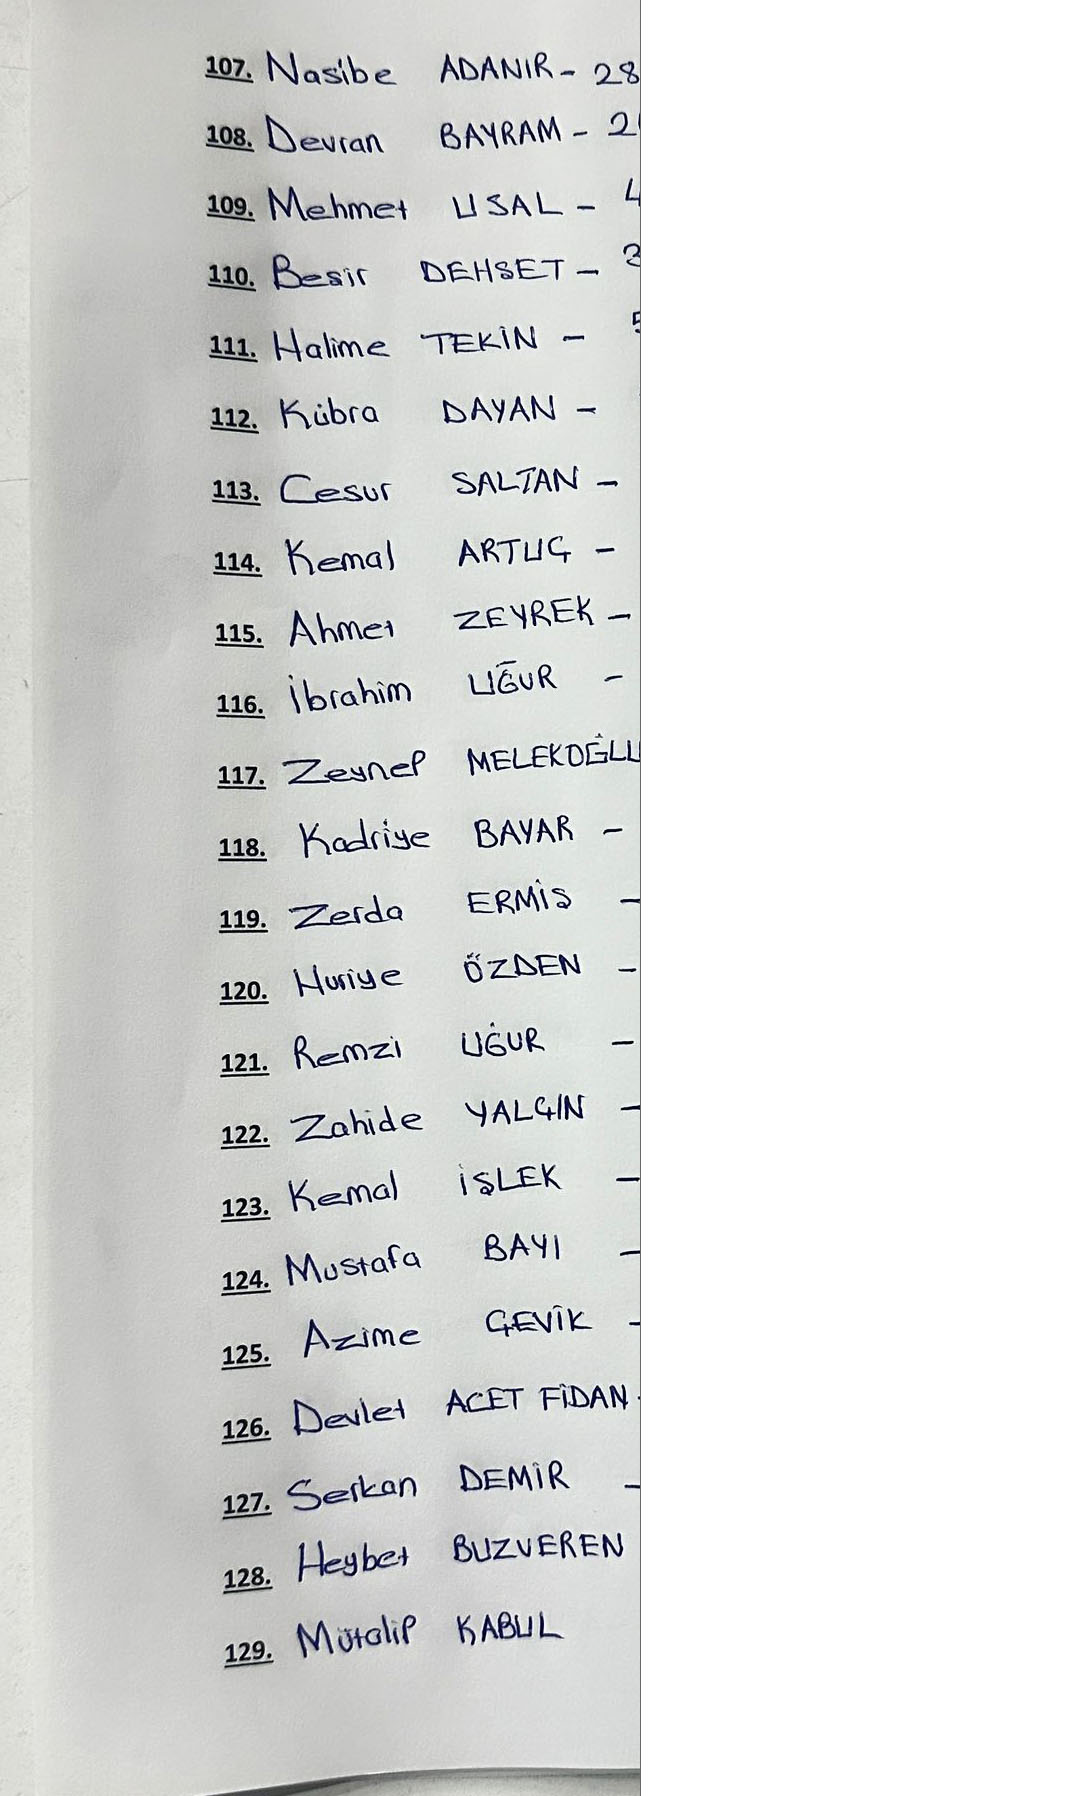 107. Nasibe ADANIR - 28
108. Devran BAYRAM - 2
109. Mehmet USAL - 4
110. Besir DEHSET - 3
111. Halime TEKİN - 5
112. Kübra DAYAN -
113. Cesur SALTAN -
114. Kemal ARTUÇ -
115. Ahmet ZEYREK -
116. İbrahim UĞUR -
117. Zeynep MELEKOĞLU
118. Kadriye BAYAR -
119. Zerda ERMİŞ -
120. Huriye ÖZDEN -
121. Remzi UĞUR -
122. Zahide YALÇIN -
123. Kemal İŞLEK -
124. Mustafa BAYI -
125. Azime ÇEVİK -
126. Devlet ACET FİDAN -
127. Serkan DEMİR -
128. Heybet BUZVEREN
129. Mütalip KABUL